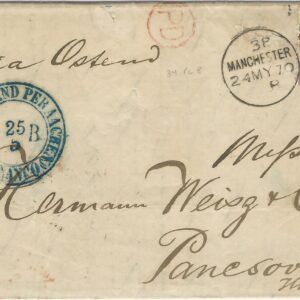 via Ostend
PD
3P
MANCHESTER
24 MY 70
R
ND PER AACHEN
25 B
5
FRANCO
Mess
Hermann Weisz &
Pancsov